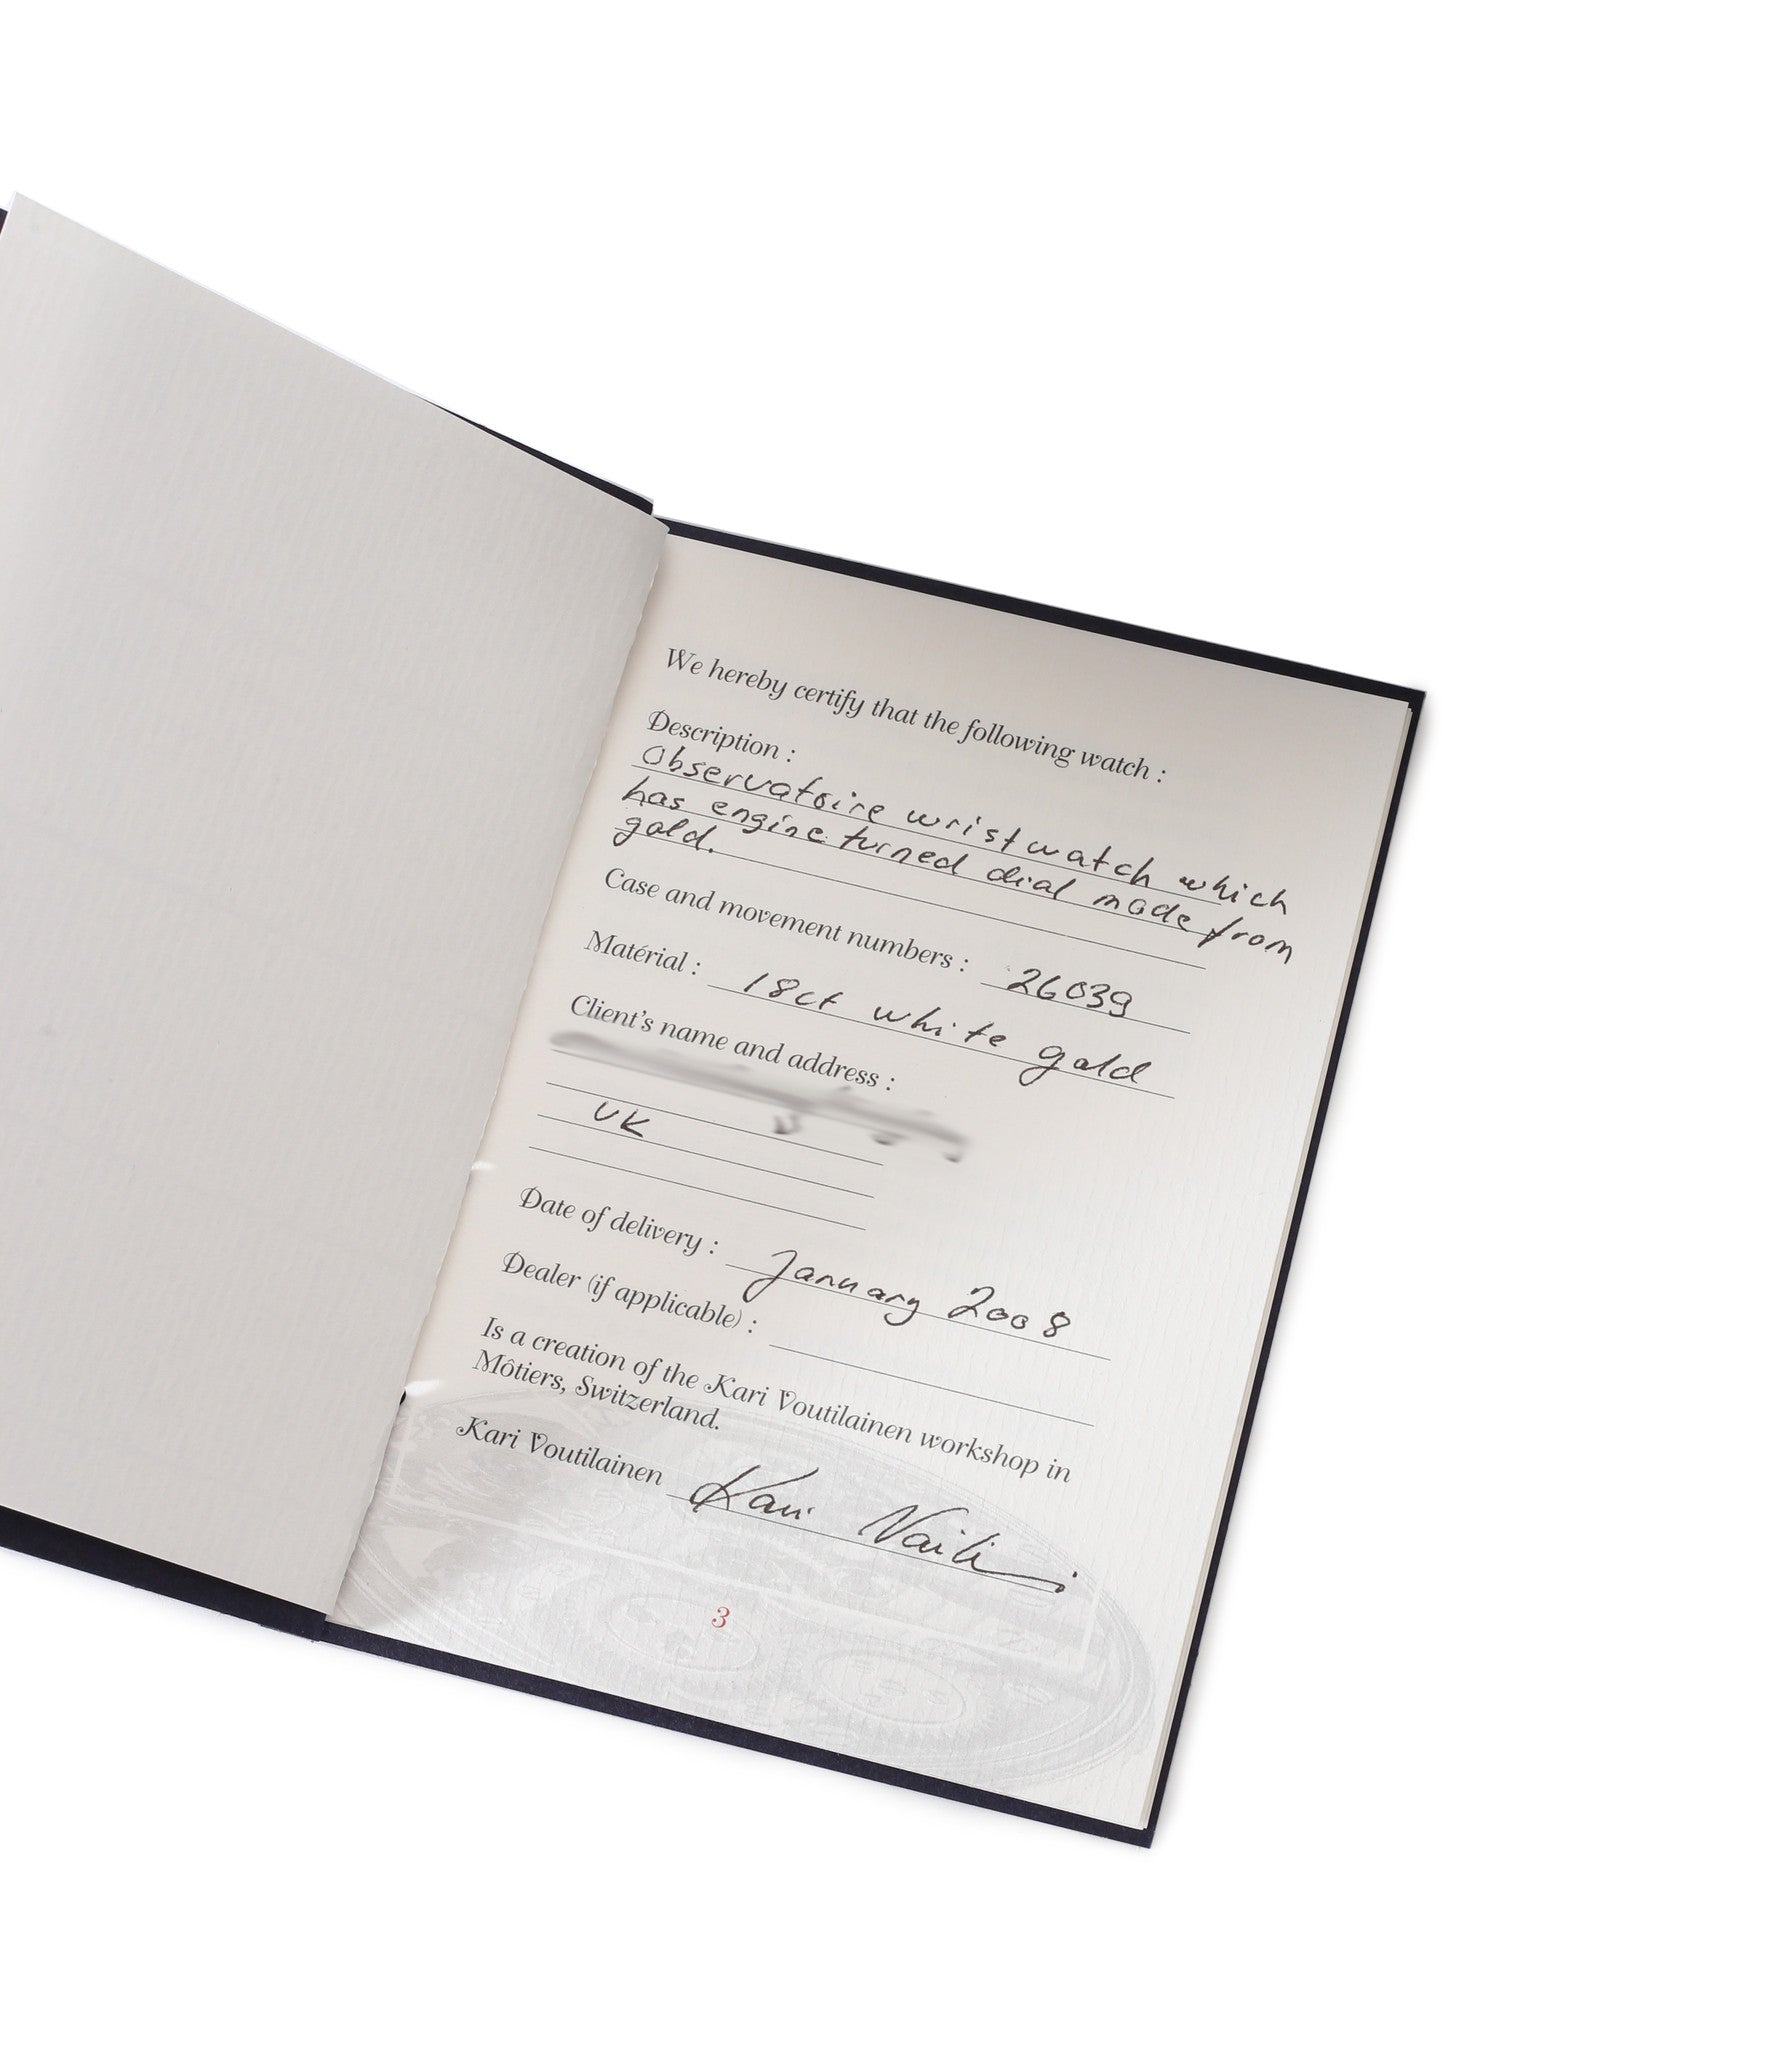 We hereby certify that the following watch :
Description :
Observatoire wristwatch which
has engine turned dial made from
gold.
Case and movement numbers : 26039
Matérial : 18ct white gold
Client's name and address :
UK
Date of delivery : January 2008
Dealer (if applicable) :
Is a creation of the Kari Voutilainen workshop in
Môtiers, Switzerland.
Kari Voutilainen Kari
3